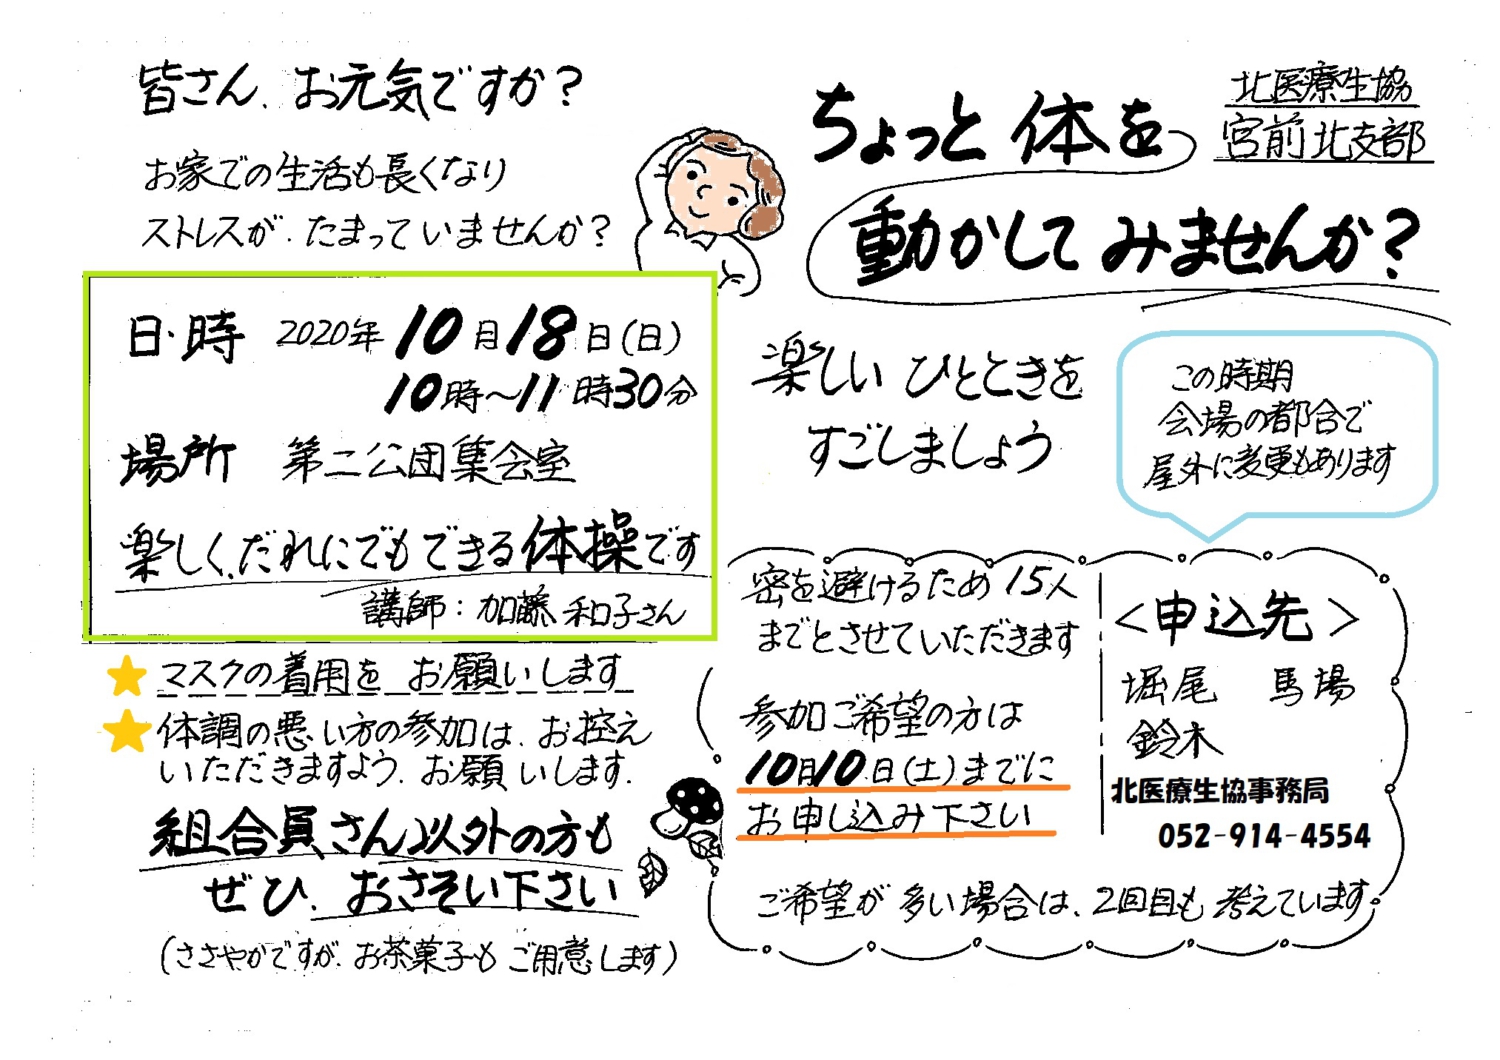 皆さん、お元気ですか？
お家での生活も長くなり
ストレスが、たまっていませんか？
ちょっと体を
動かしてみませんか？
北医療生協
宮前北支部
日・時 2020年10月18日(日)
10時～11時30分
場所 第二公団集会室
楽しく、だれにでもできる体操です
講師：加藤和子さん
楽しいひとときを
すごしましょう
この時期
会場の都合で
屋外に変更もあります
★マスクの着用をお願いします
★体調の悪い方の参加は、お控え
いただきますよう、お願いします.
組合員さん以外の方も
ぜひ、おさそい下さい
(ささやかですが、お茶菓子もご用意します)
密を避けるため15人
までとさせていただきます
参加ご希望の方は
10月10日(土)までに
お申し込み下さい
＜申込先＞
堀尾 馬場
鈴木
北医療生協事務局
052-914-4554
ご希望が多い場合は、2回目も考えています。